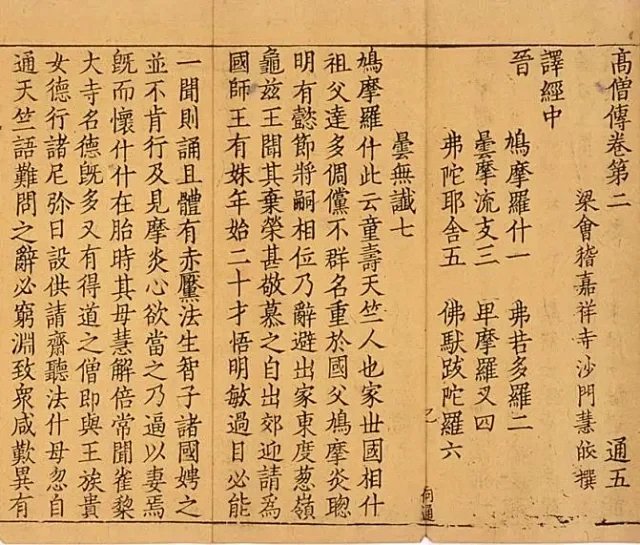 髙僧傳卷第二 通五
梁會稽嘉祥寺沙門慧皎撰
譯經中
晉
鳩摩羅什一 弗若多羅二
曇摩流支三 卑摩羅叉四
弗陀耶舍五 佛馱跋陀羅六
曇無讖七
鳩摩羅什此云童壽天竺人也家世國相什
祖父達多倜儻不群名重於國父鳩摩炎聰
明有懿節將嗣相位乃辭避出家東度葱嶺
龜茲王聞其棄榮甚敬慕之自出郊迎請為
國師王有妹年始二十才悟明敏過目必能
一聞則誦且體有赤黶法生智子諸國娉之
並不肯行及見摩炎心欲當之乃逼以妻焉
既而懷什什在胎時其母慧解倍常聞雀棃
大寺名德既多又有得道之僧即與王族貴
女德行諸尼弥日設供請齋聽法什母忽自
通天竺語難問之辭必窮淵致衆咸歎異有